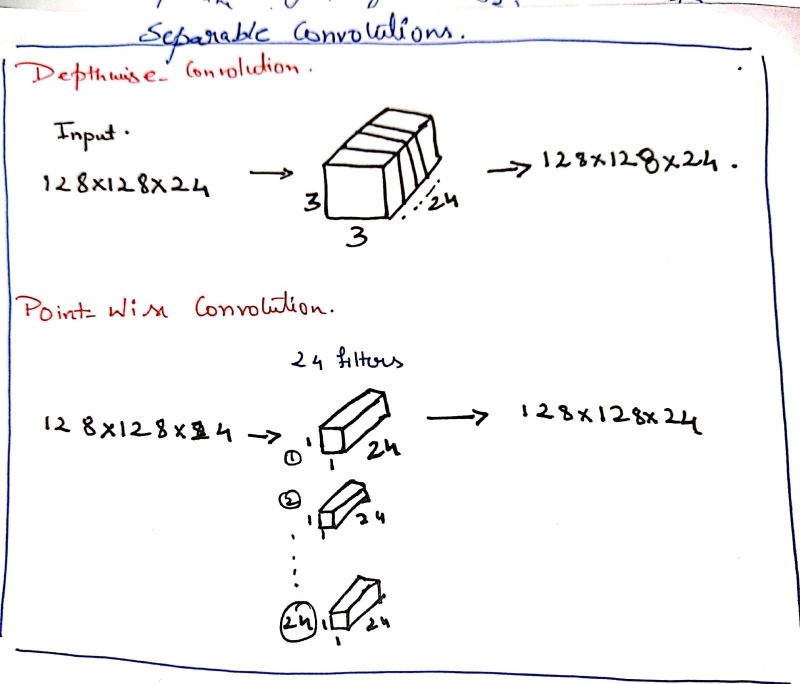 Separable Convolutions.
Depthwise- Convolution.
Input.
128x128x24 → 3 3 24 → 128x128x24.
Point- Wise Convolution.
24 filters
128x128x24 → ① 1 1 24 → 128x128x24
② 1 1 24
24 1 1 24